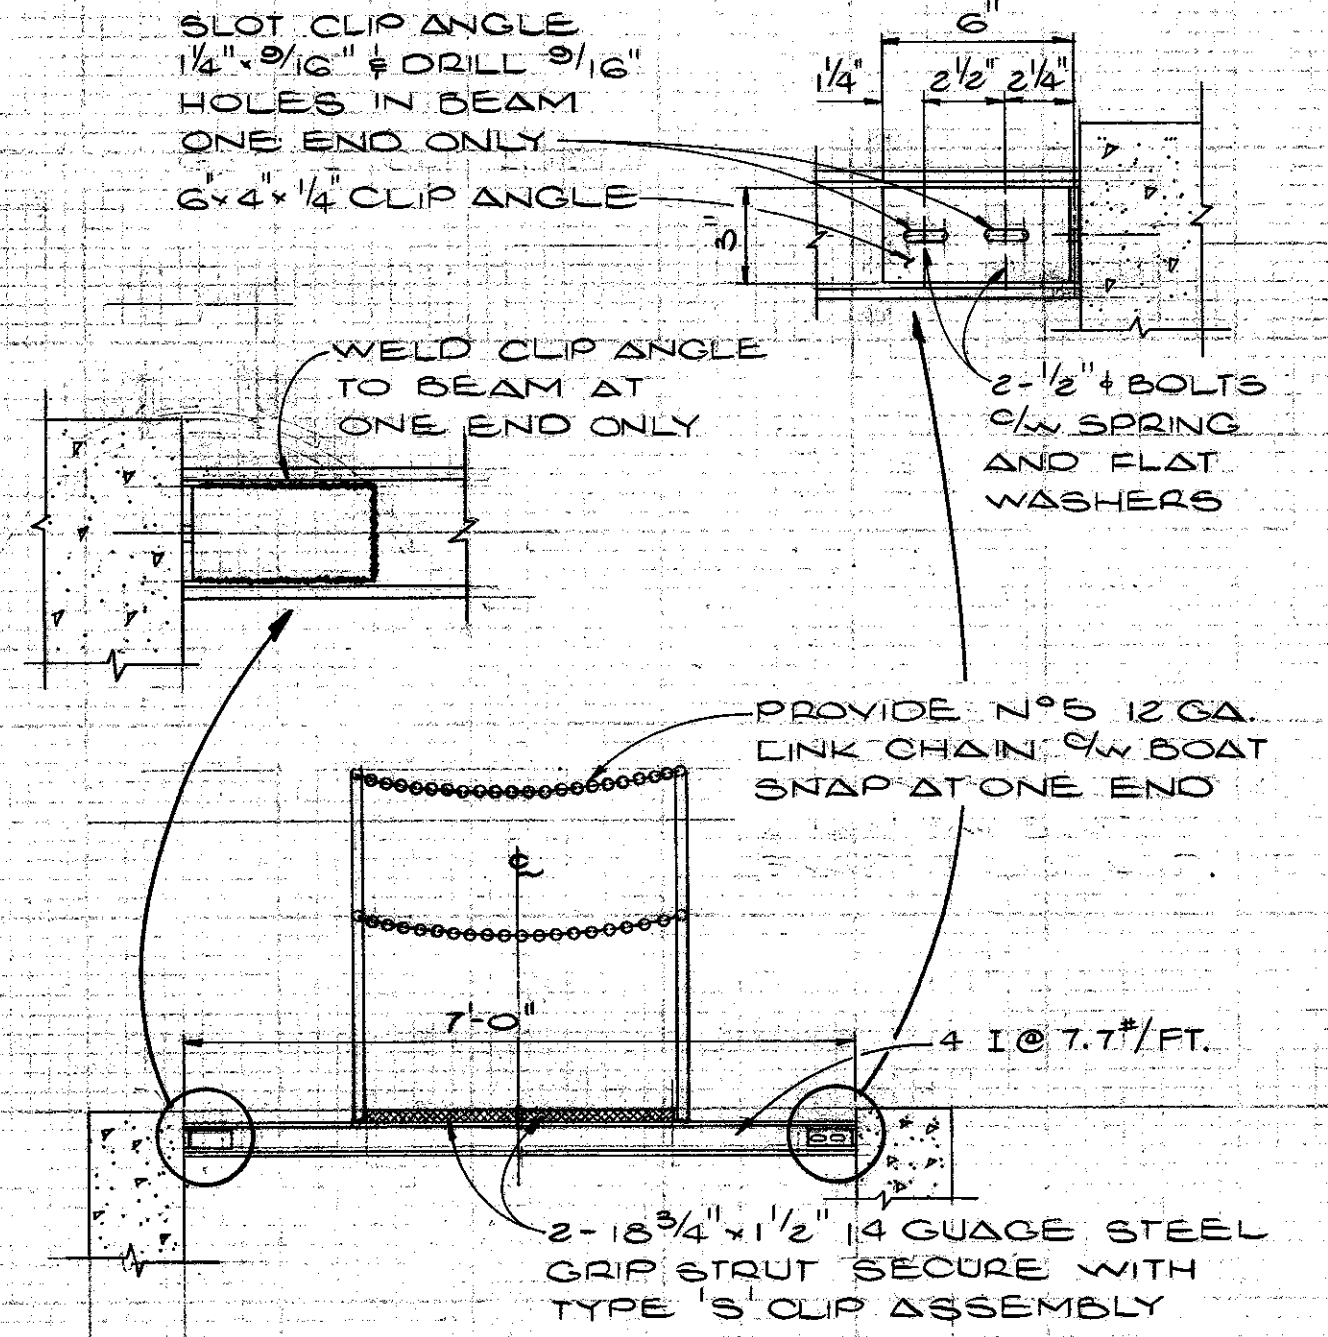 SLOT CLIP ANGLE
1 1/4" x 9/16" & DRILL 9/16"
HOLES IN BEAM
ONE END ONLY
6" x 4" x 1/4" CLIP ANGLE
6"
1 1/4" 2 1/2" 2 1/4"
3"
WELD CLIP ANGLE
TO BEAM AT
ONE END ONLY
2 - 1/2" ϕ BOLTS
C/W SPRING
AND FLAT
WASHERS
PROVIDE Nº5 12 GA.
LINK CHAIN C/W BOAT
SNAP AT ONE END
℄
7'-0"
4 I @ 7.7#/FT.
2 - 18 3/4" x 1 1/2" 14 GUAGE STEEL
GRIP STRUT SECURE WITH
TYPE 'S' CLIP ASSEMBLY